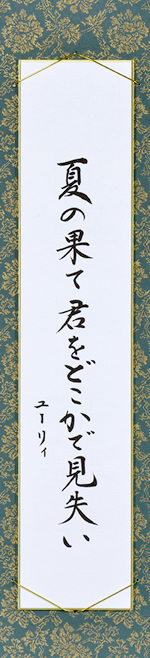 夏の果て君をどこかで見失い
ユーリィ